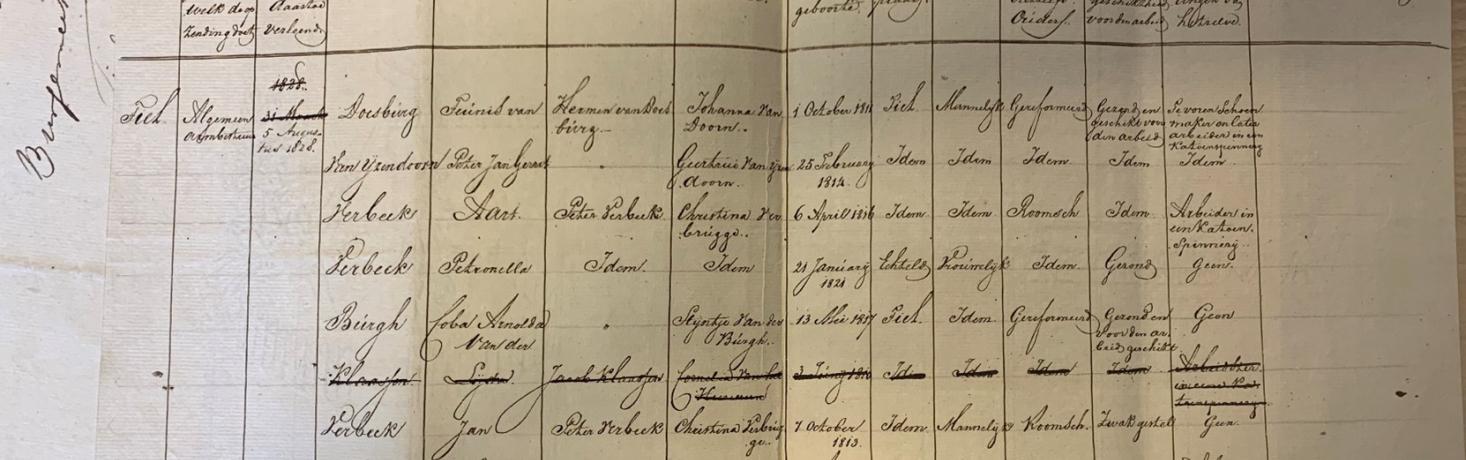 welk de op
zending doet
verleend
geboorte.
Ouders.
voor den arbeid
hetzelve.
Burgemeest
Tiel Algemeen
armbestuur
1828.
31 Maart
5 Augus-
tus 1828.
Doesburg Teunis van Hermen van Does
burg Johanna Van
Doorn. 1 October 1811 Tiel Mannelijk Gereformeerd Gezond en
geschikt voor
den arbeid Te voren Schoen
maker en later
arbeider in een
Katoenspinnerij
Van Yzendoorn Peter Jan Gerrit " Geertrui Van Yzen
doorn. 25 February
1814. Idem Idem Idem Idem Idem.
Verbeek Aart. Peter Verbeek. Christina Ver
brugge. 6 April 1816 Idem Idem Roomsch Idem. Arbeider in
een Katoen.
Spinnerij.
Verbeek Petronella Idem. Idem 21 January
1821 Echteld Vrouwelijk Idem. Gezond Geen.
Burgh Coba Arnolda
van der " Styntje Van der
Burgh. 13 Mei 1817 Tiel. Idem. Gereformeerd Gezond en
voor den ar-
beid geschikt Geen
Klaassen Jacob Klaassen Cornelia Van het
Idem Idem Idem Idem
in eene Ka
toenspinnerij
Verbeek Jan Peter Verbeek Christina Verbrug
ge. 7 October
1813. Idem. Mannelijk Roomsch. Zwak gestel Geen.